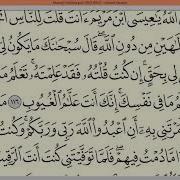 ٱللَّهُ يَٰعِيسَى ٱبْنَ مَرْيَمَ ءَأَنتَ قُلْتَ لِلنَّاسِ
إِلَٰهَيْنِ مِن دُونِ ٱللَّهِ قَالَ سُبْحَٰنَكَ مَا يَكُونُ لِي
لِي بِحَقٍّ إِن كُنتُ قُلْتُهُۥ فَقَدْ عَلِمْتَهُۥ تَعْلَمُ
مَا فِي نَفْسِكَ إِنَّكَ أَنتَ عَلَّٰمُ ٱلْغُيُوبِ ١١٦
بِهِۦٓ أَنِ ٱعْبُدُوا۟ ٱللَّهَ رَبِّي وَرَبَّكُمْ وَكُنتُ
مَّا دُمْتُ فِيهِمْ فَلَمَّا تَوَفَّيْتَنِي كُنتَ أَنتَ